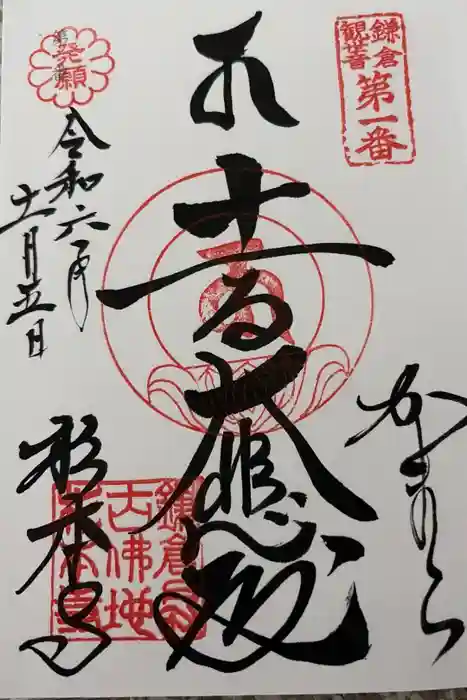 鎌倉
観世音
第一番
かまくら
十一面大悲殿
第一番
発願
令和六年
十一月五日
杉本寺
古佛地